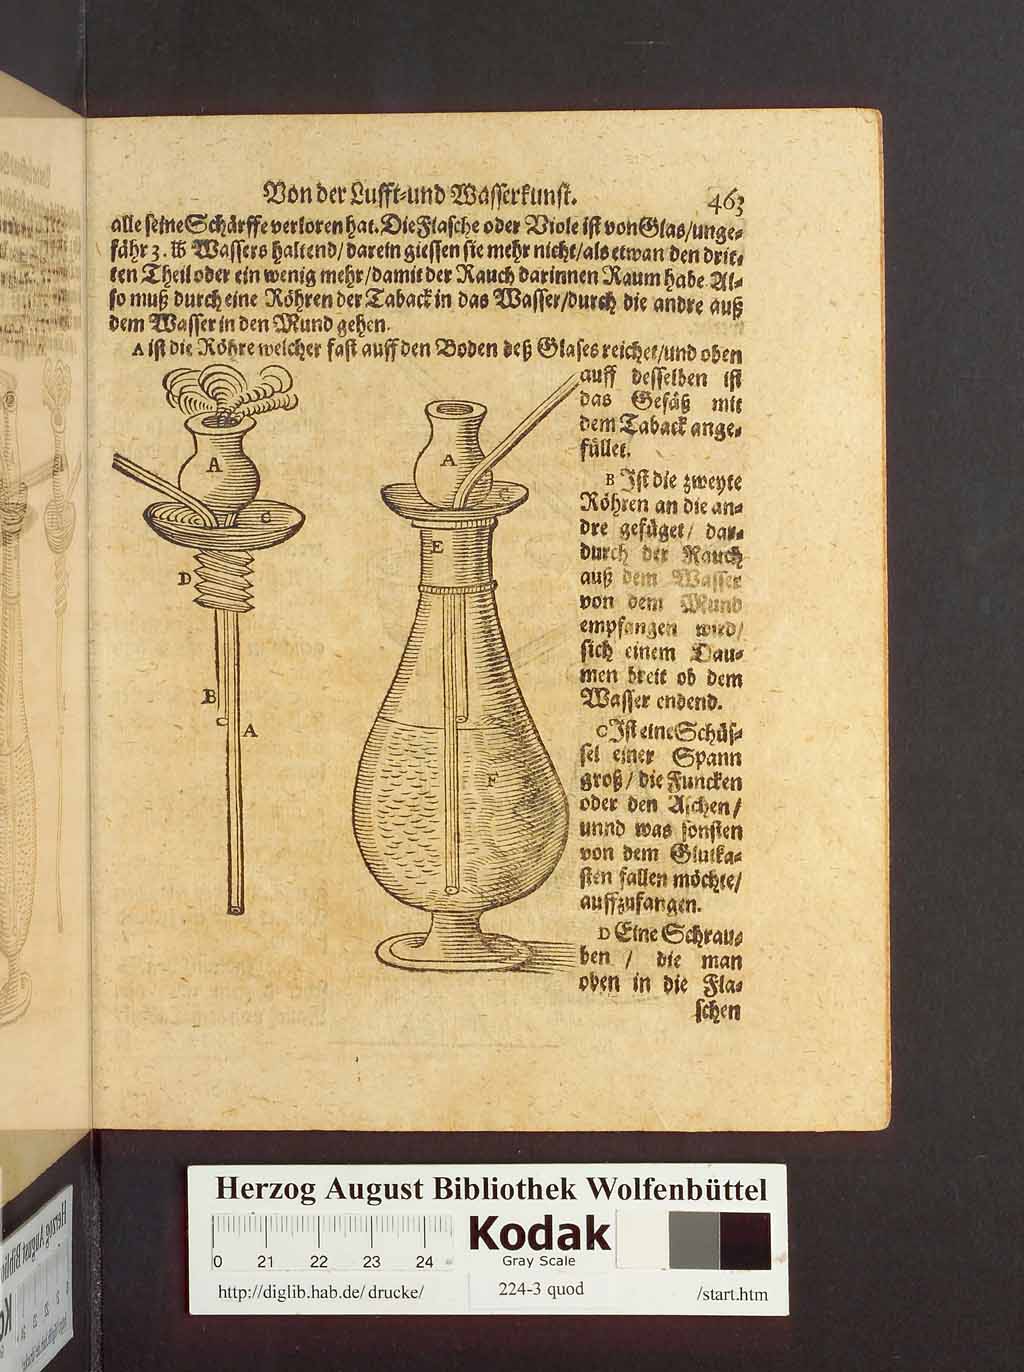 Von der Lufft-und Wasserkunst.
463
alle seine Schärffe verloren hat. Die Flasche oder Viole ist von Glas/unge-
fähr 3. ℔ Wassers haltend/darein giessen sie mehr nicht/als etwan den drit-
ten Theil oder ein wenig mehr/damit der Rauch darinnen Raum habe. Al-
so muß durch eine Röhren der Taback in das Wasser/durch die andre auß
dem Wasser in den Mund gehen.
A ist die Röhre welcher fast auff den Boden deß Glases reichet/und oben
auff desselben ist
das Gefäß mit
dem Taback ange-
füllet.
B Ist die zweyte
Röhren an die an-
dre gefüget/ dar-
durch der Rauch
auß dem Wasser
von dem Mund
empfangen wird/
sich einem Dau-
men breit ob dem
Wasser endend.
C Ist eine Schüs-
sel einer Spann
groß/ die Funcken
oder den Aschen/
unnd was sonsten
von dem Glutka-
sten fallen möchte/
auffzufangen.
D Eine Schrau-
ben / die man
oben in die Fla-
schen
A
C
D
B
A
A
C
E
F
Herzog August Bibliothek Wolfenbüttel
0 21 22 23 24
Kodak
Gray Scale
http://diglib.hab.de/drucke/
224-3 quod
/start.htm